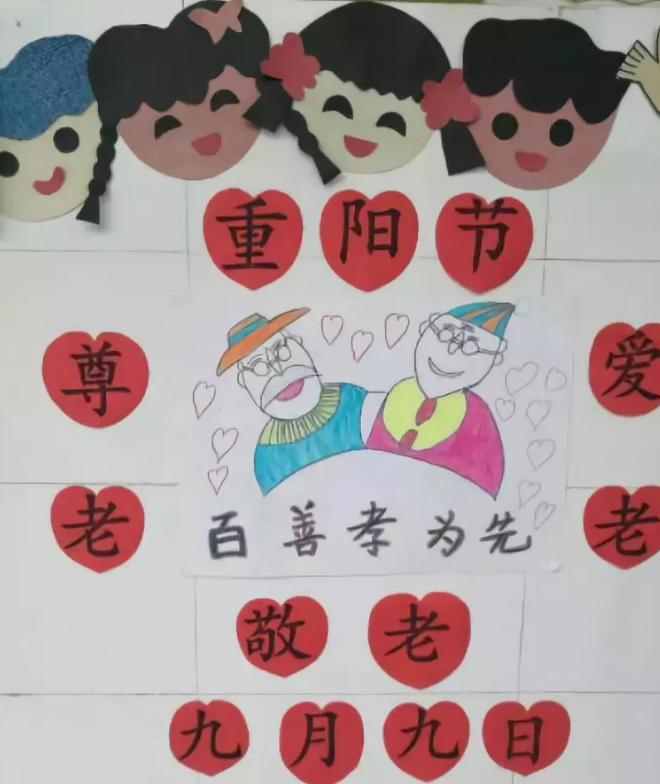 重阳节
尊老
爱老
百善孝为先
敬老
九月九日